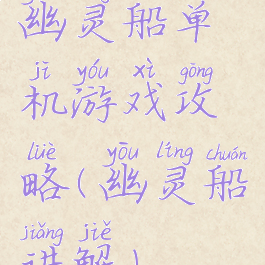 幽灵船单
jī yóu xì gōng
机游戏攻
lüè yōu líng chuán
略(幽灵船
jiǎng jiě
讲解)